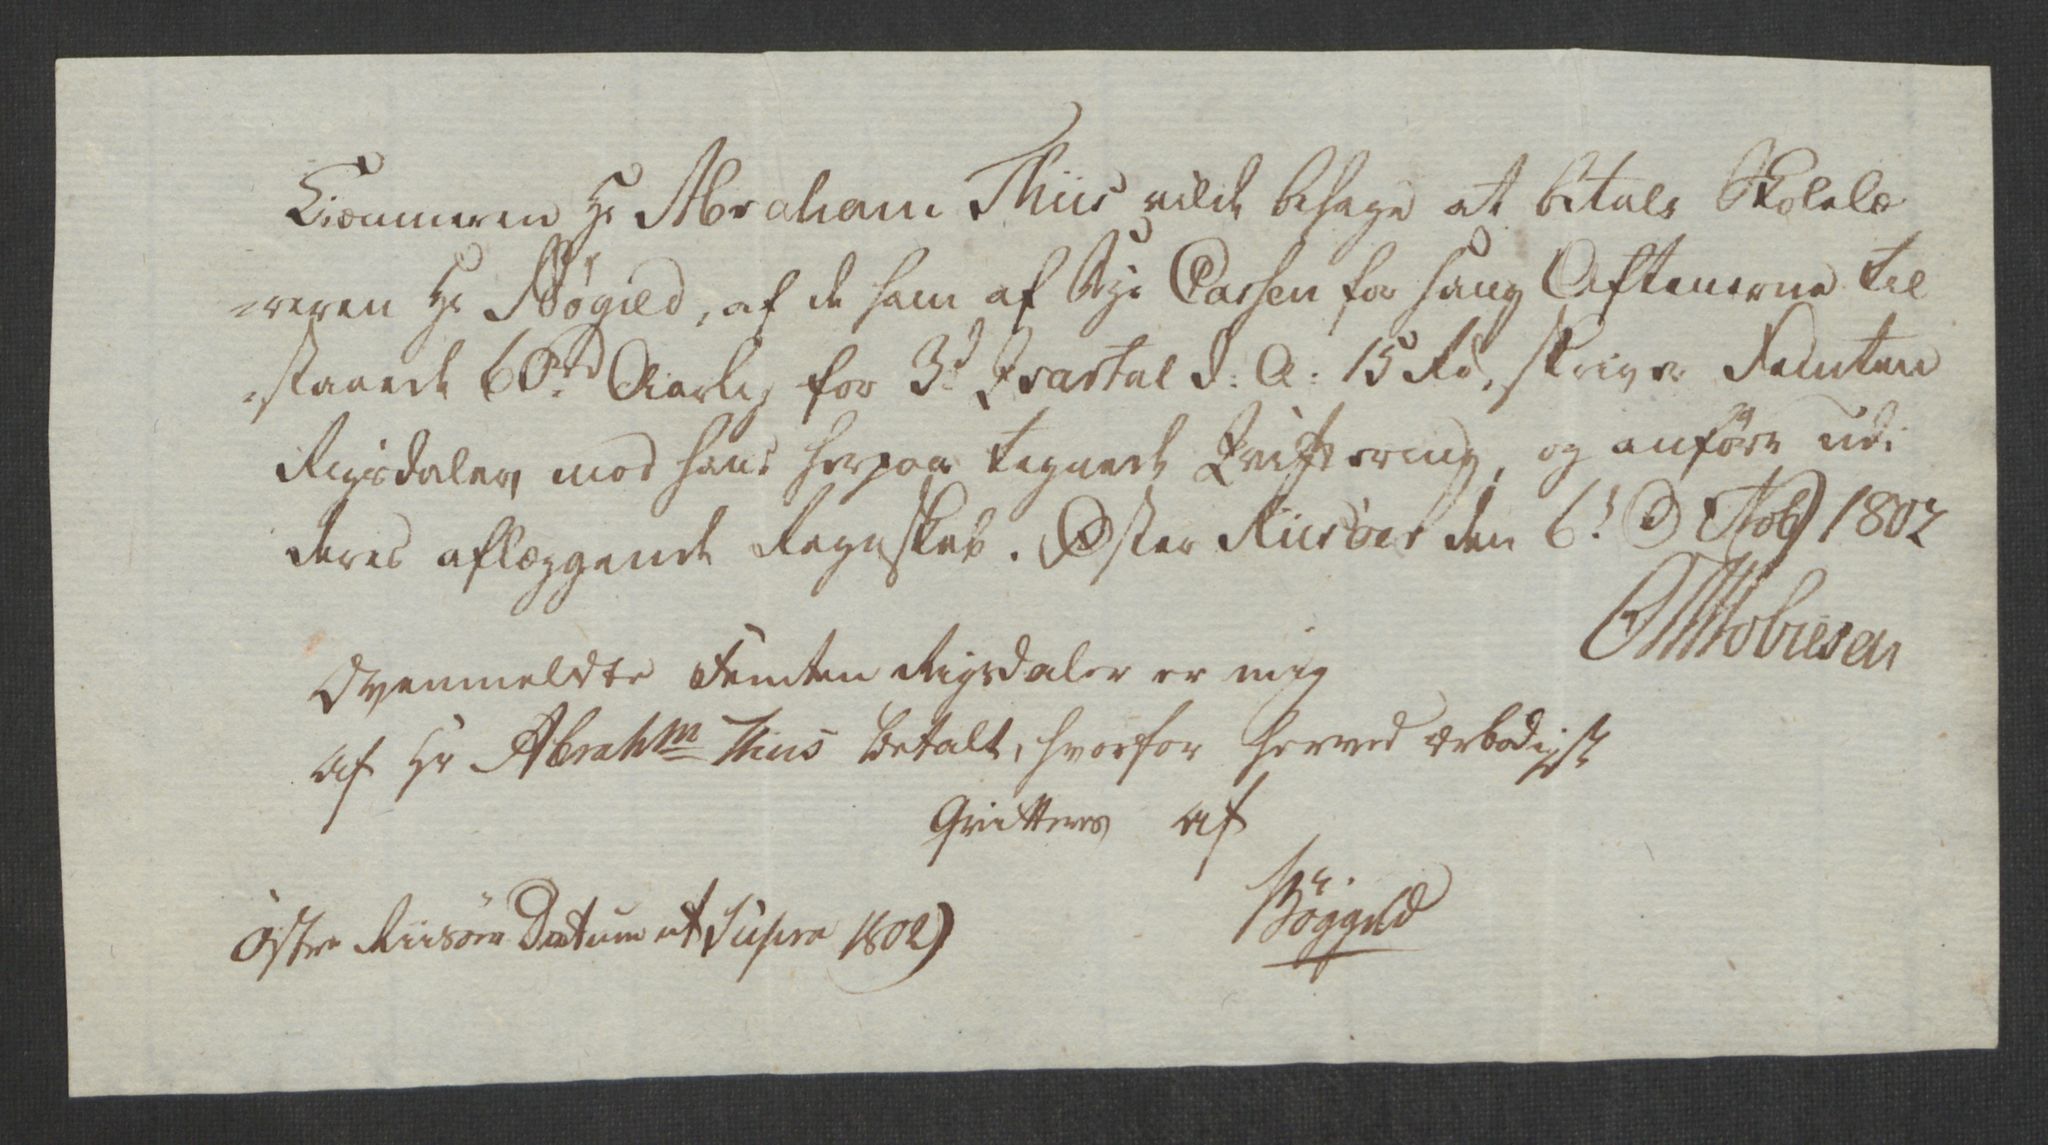 Kiæmneren Hr Abraham Thiis vilde behage at betale Skolelæ-
-reren Hr Bøgild, af de ham af Bye Cassen for hans Aftenerne til
-staaede 60 rd Aarlig for 3d Qvartal d: A: 15 Rd, skriver Femten
Rigsdaler, mod hans herpaa tegnede Qvittering, og anføre udi
deres aflæggende Regnskab. Øster Riisöer den 6t Octobr 1802
Ovenmeldte Femten Rigsdaler er mig
af Hr Abrahm Thiis betalt, hvorfor herved ærbødigst
Qvitteres af
Böggild
Östre Riisöer Datum ut Supra 1802)